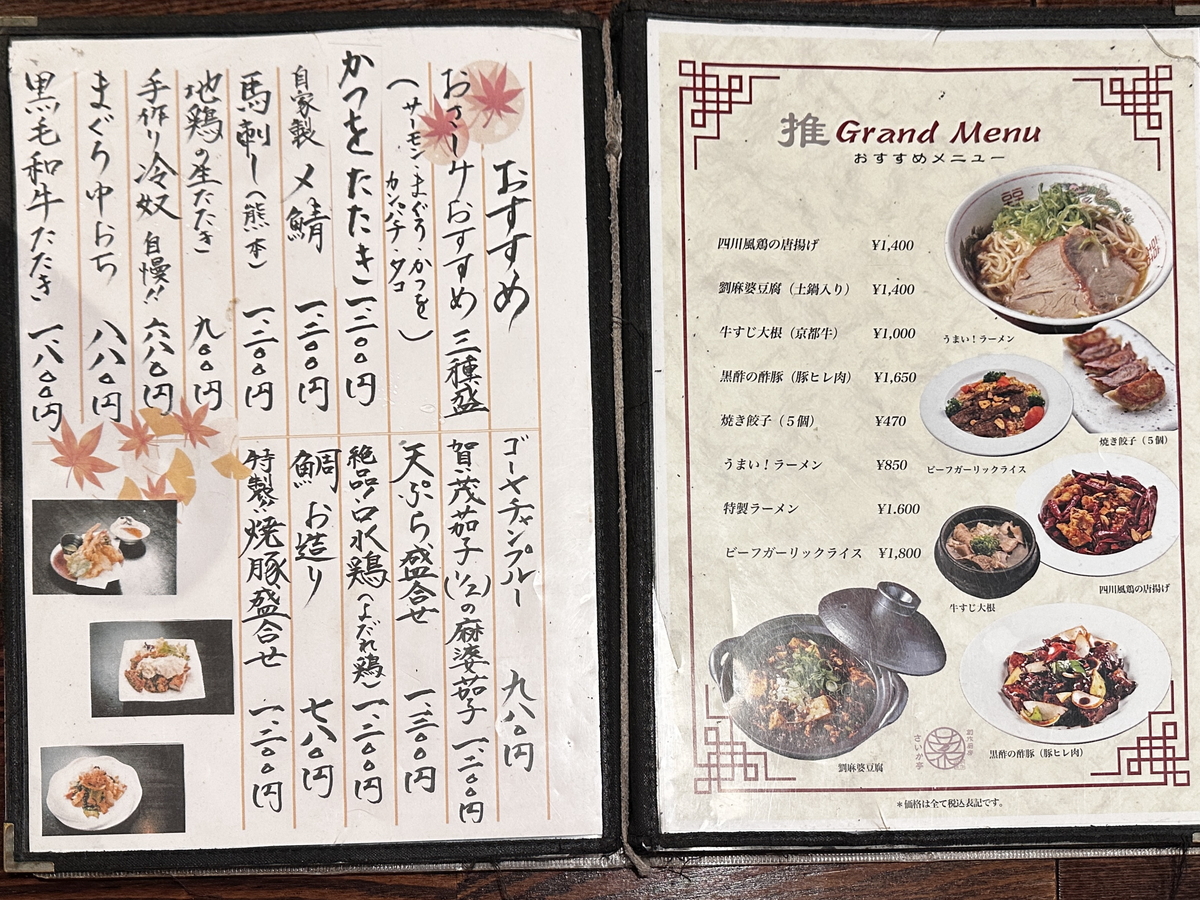 おすすめ
おさしみおすすめ 三種盛
(サーモン・まぐろ・かつを
カンパチ・タコ)
かつをたたき 一、二〇〇円
自家製 〆鯖 一、二〇〇円
馬刺し(熊本) 一、二〇〇円
地鶏の生たたき 九〇〇円
手作り冷奴 自慢!! 六八〇円
まぐろ中おち 八八〇円
黒毛和牛たたき 一、八〇〇円
ゴーヤチャンプルー 九八〇円
賀茂茄子(1/2)の麻婆茄子 一、二〇〇円
天ぷら盛合せ 一、三〇〇円
絶品!口水鶏(よだれ鶏) 一、二〇〇円
鯛お造り 七八〇円
特製焼豚盛合せ 一、二〇〇円
推 Grand Menu
おすすめメニュー
四川風鶏の唐揚げ ¥1,400
劉麻婆豆腐(土鍋入り) ¥1,400
牛すじ大根(京都牛) ¥1,000
黒酢の酢豚(豚ヒレ肉) ¥1,650
焼き餃子(5個) ¥470
うまい!ラーメン ¥850
特製ラーメン ¥1.600
ビーフガーリックライス ¥1,800
うまい!ラーメン
焼き餃子(5個)
ビーフガーリックライス
四川風鶏の唐揚げ
牛すじ大根
劉麻婆豆腐
さいか亭
黒酢の酢豚(豚ヒレ肉)
*価格は全て税込表記です。